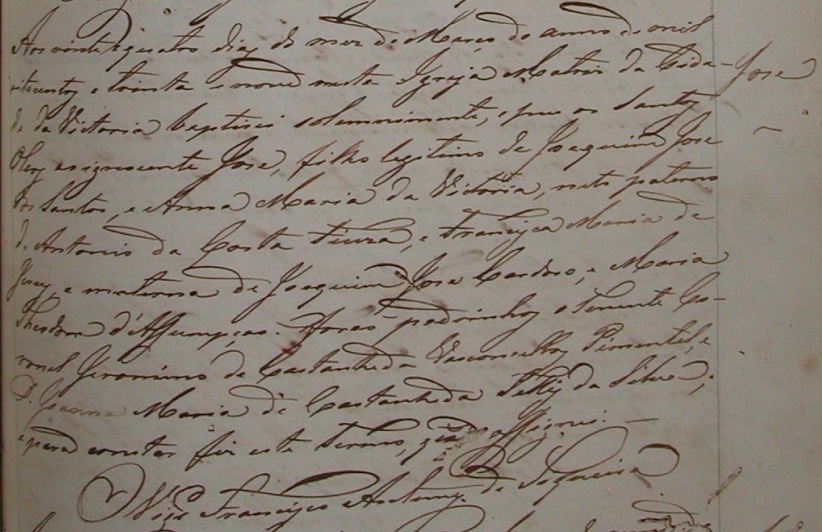 Aos vinte e quatro dias do mez de Março do anno de mil
oitocentos e trinta e nove nesta Igreja Matriz da Cida-
José
de da Victoria baptisei solemnimente, e pus os Santos
Oleos ao ignocente José, filho legitimo de Joaquim José
dos Santos, e Anna Maria da Victoria, neto paterno
de Antonio da Costa, e Francisca Maria de
Jesus, e materno de Joaquim José Cardoso, e Maria
Theodora d'Assumpção. Forão padrinhos o Tenente Co-
ronel Jeronimo de Castanheda Vasconcellos Pimentel, e
D. Joanna Maria de Castanheda da Silva;
e para constar fiz este termo, que assignei.
O Vigr.o Francisco Antunes de Siqueira